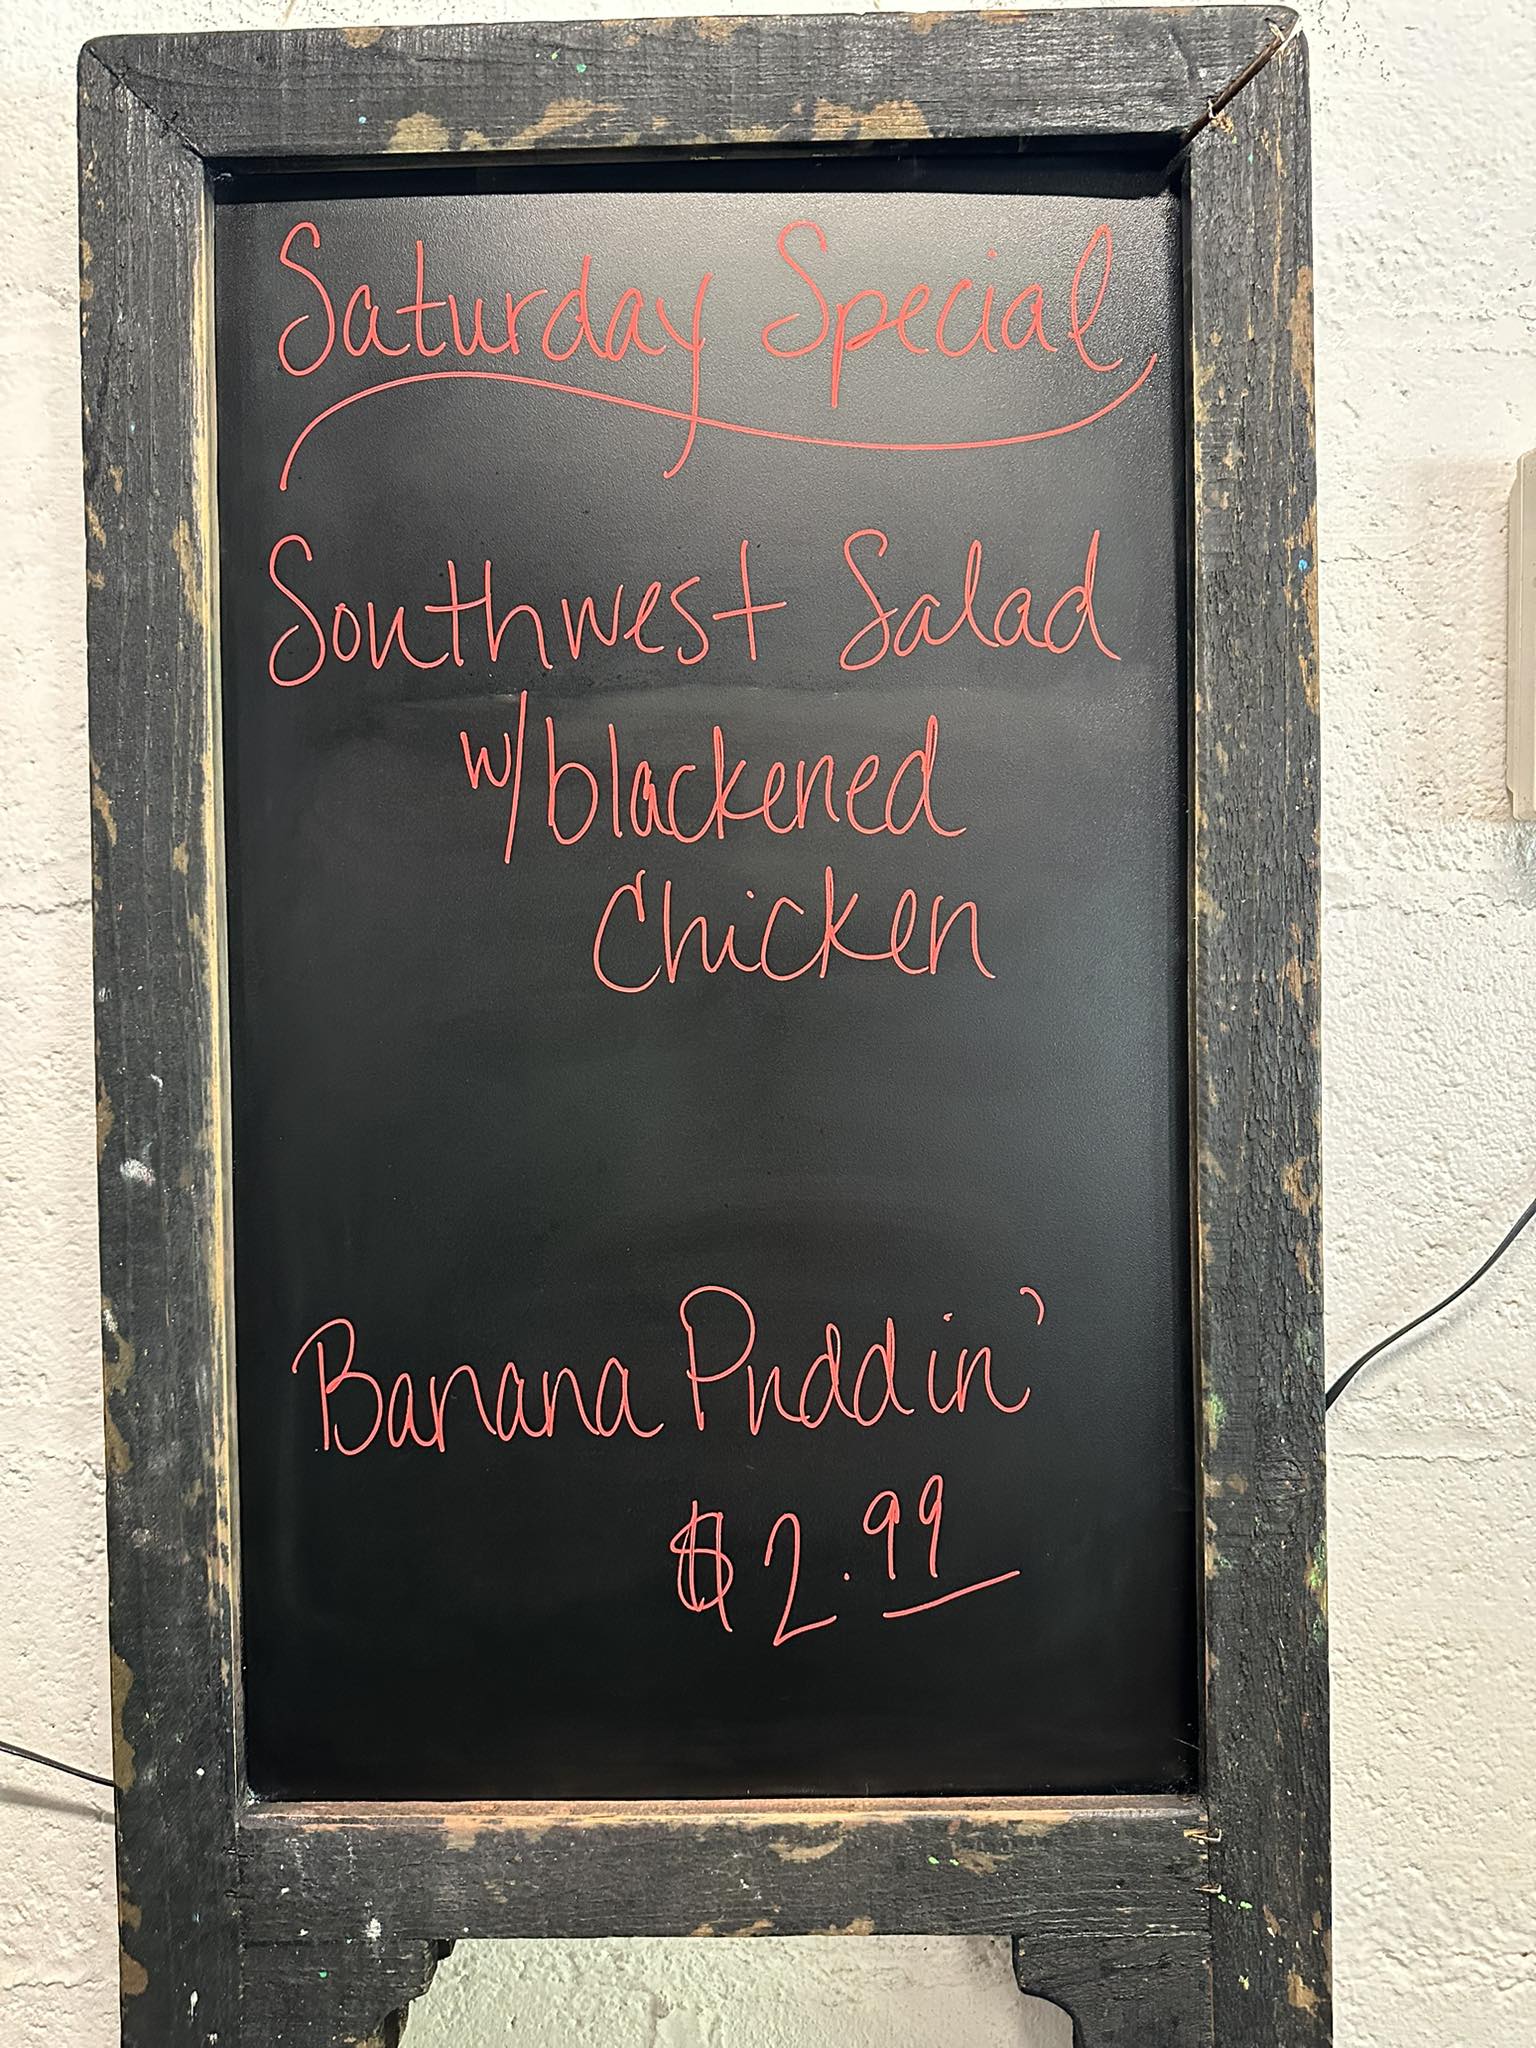 Saturday Special
Southwest Salad
w/blackened
Chicken
Banana Puddin'
$2.99